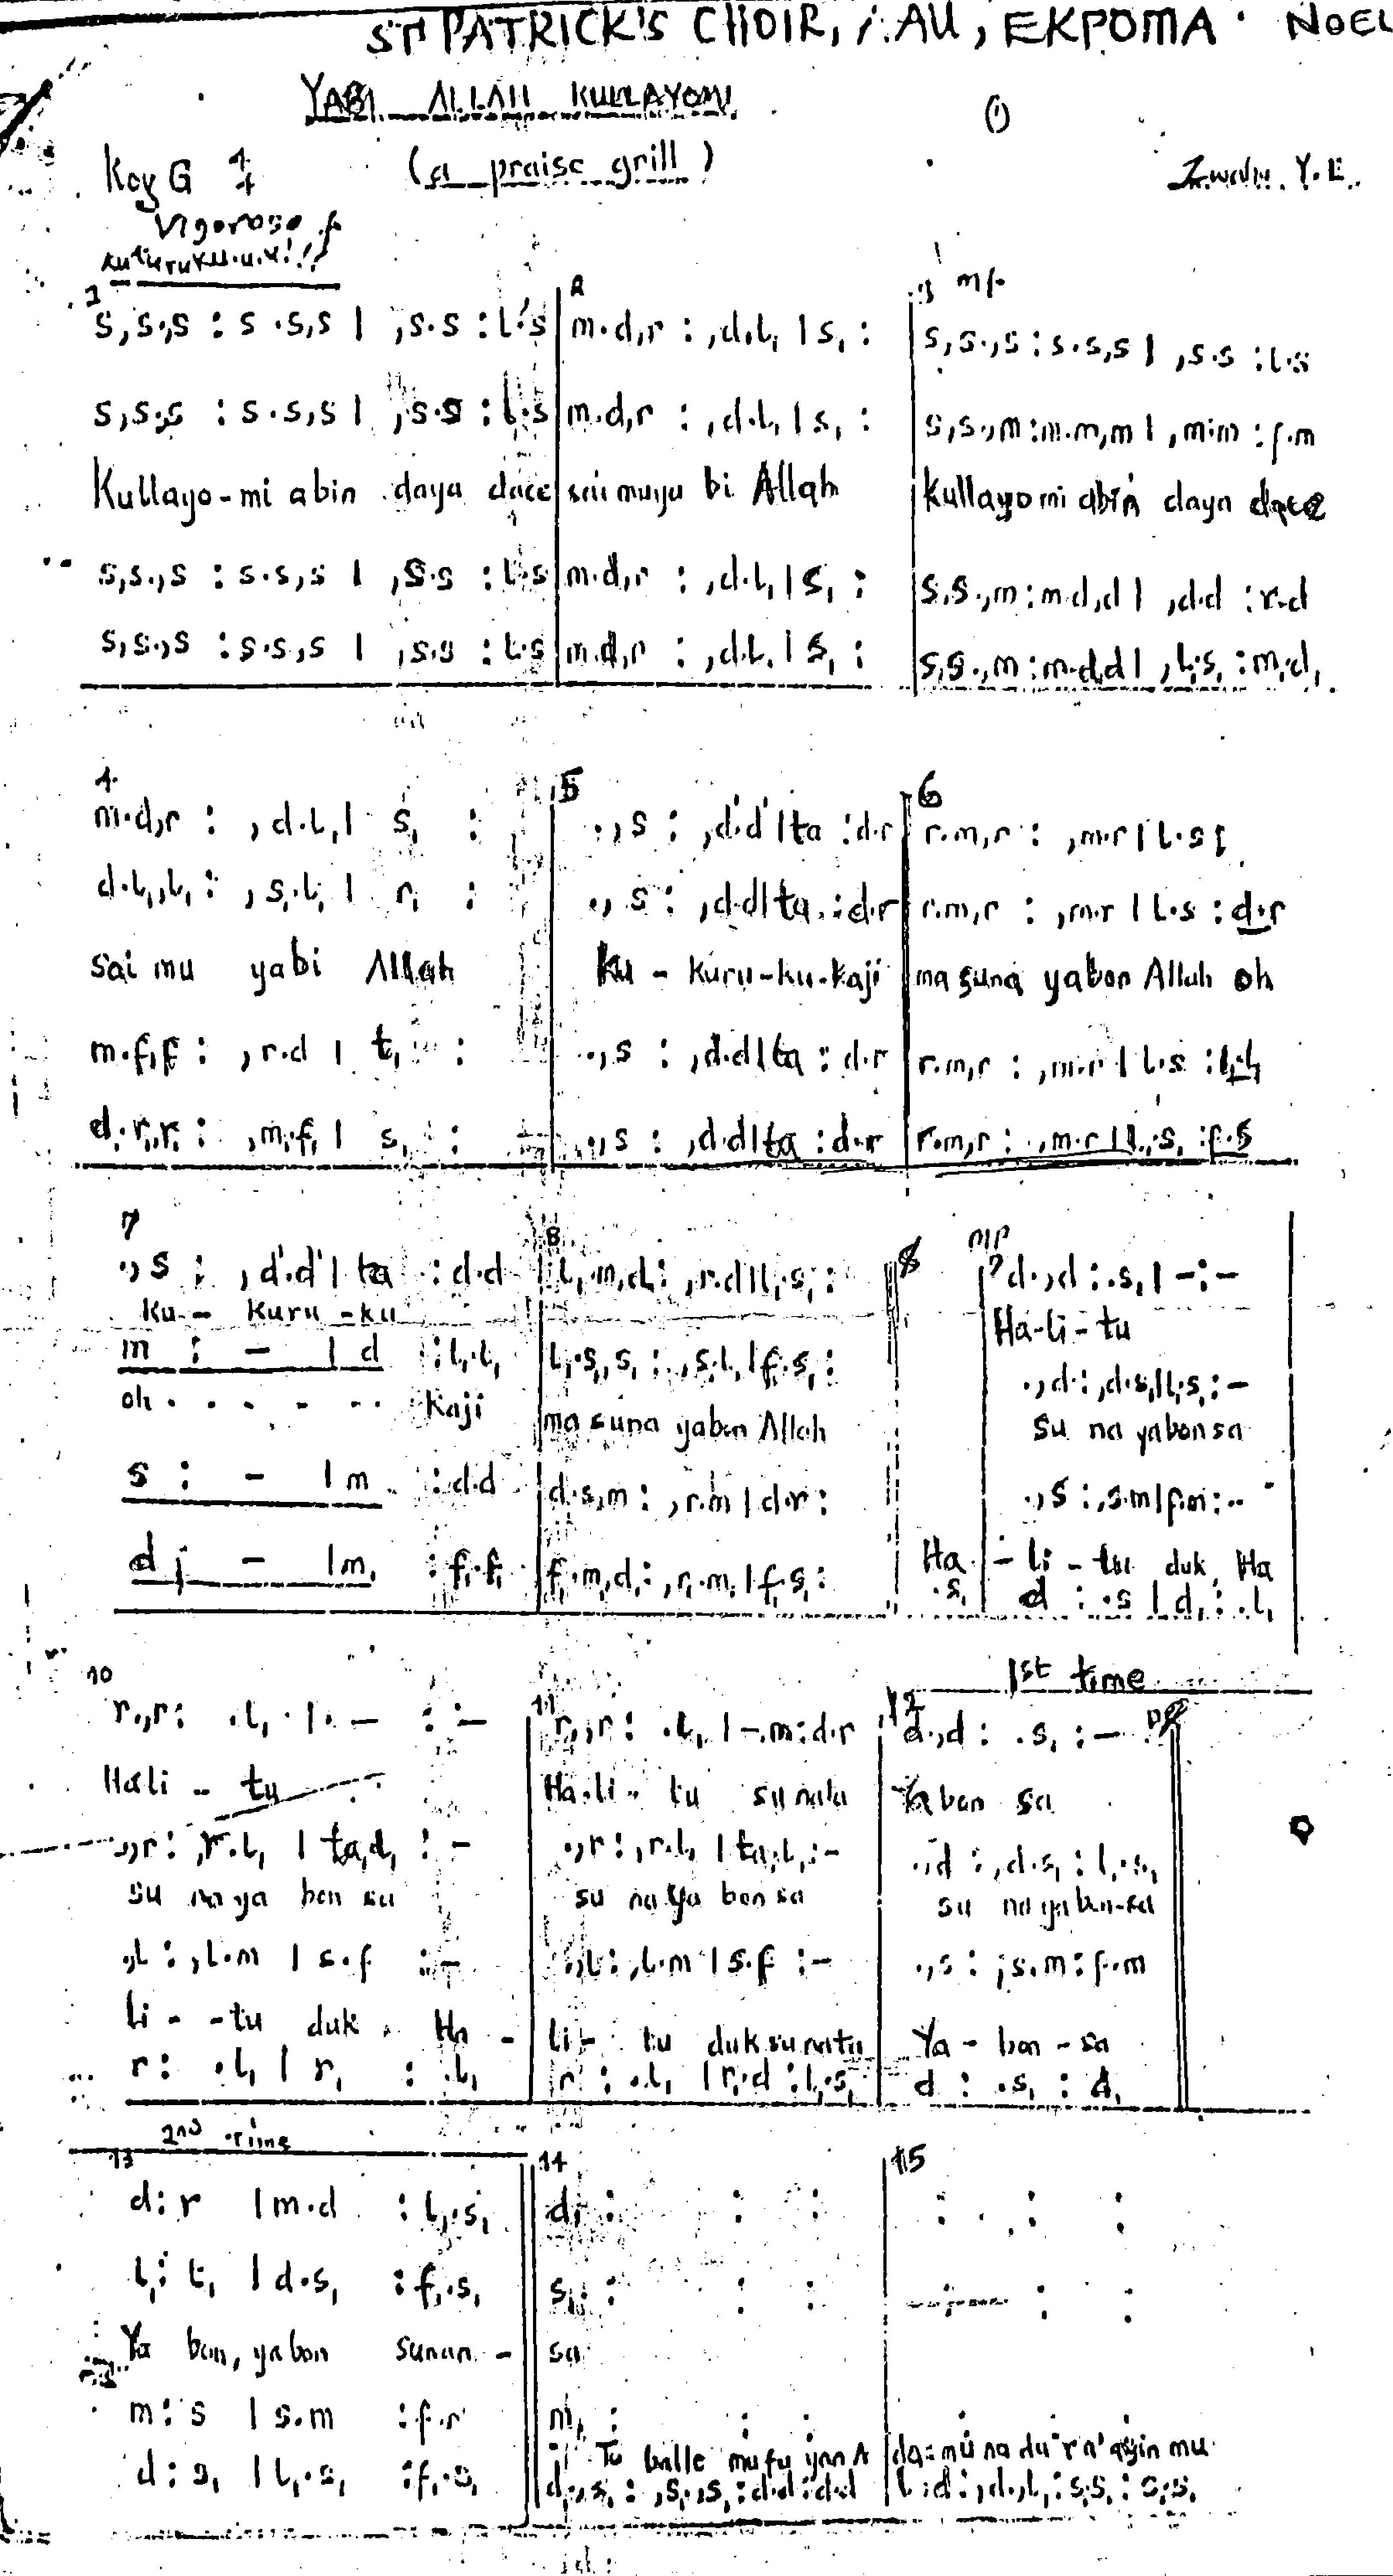 ST PATRICK'S CHOIR, AAU, EKPOMA. NOEL
YABI ALLAH KULLAYOMI
(1)
Key G 4/4 (a praise grill)
Vigoroso f
1 2 3 mf
s,s.,s : s.s,s | ,s.s : l.s | m.d,r : ,d.l, | s, : | s,s.,s : s.s,s | ,s.s : l.s
s,s.,s : s.s,s | ,s.s : l.s | m.d,r : ,d.l, | s, : | s,s.,m : m.m,m | ,m.m : f.m
Kullayo-mi abin daya dace sai muyu bi Allah Kullayomi abin daya dace
s,s.,s : s.s,s | ,s.s : l.s | m.d,r : ,d.l, | s, : | s,s.,m : m.d,d | ,d.d : r.d
s,s.,s : s.s,s | ,s.s : l.s | m.d,r : ,d.l, | s, : | s,s.,m : m.d,d | ,l,.s, : m,.d,
4 5 6
m.d,r : ,d.l, | s, : | .,s : ,d'.d' | ta : d.r | r.m,r : ,m.r | l.s :
d.l,,l, : ,s,.l, | r, : | .,s : ,d.d | ta : d.r | r.m,r : ,m.r | l.s : d.r
Sai mu yabi Allah Ku - kuru-ku-kaji ma suna yabon Allah oh
m.f,f : ,r.d | t, : | .,s : ,d.d | ta : d.r | r.m,r : ,m.r | l.s : l,.l,
d.r,r, : ,m,.f, | s, : | .,s : ,d.d | ta : d.r | r.m,r : ,m.r | l,.s, : f.s
7 8 mp
.,s : ,d'.d' | ta : d.d | l,.m,d : ,r.d | l,.s, : | d.,d : .s, | - : -
Ku - kuru - ku Ha-li-tu
m : - | d : l,.l, | l,.s,,s, : ,s,.l, | f,.s, : | .,d : ,d.s, | l,.s, : -
oh . . . . . . kaji ma suna yabon Allah su na yabon sa
s : - | m : d.d | d.s,m : ,r.m | d.r : | .,s : ,s.m | f.m : -
Ha - li - tu duk Ha
d : - | m, : f,.f, | f,.m,d, : ,r,.m, | f,.s, : | .s, | d : .s | d, : .l,
1st time
10 11 12
r.,r : .l, | - : - | r.,r : .l, | -.m : d.r | d.,d : .s, : -
Hali - tu Ha-li - tu su nata Yabon sa
.,r : ,r.l, | ta,.l, : - | .,r : ,r.l, | ta,.l, : - | .,d : ,d.s, : l,.s,
su na ya bon sa su na ya bon sa su na ya bon-sa
.,l : ,l.m | s.f : - | .,l : ,l.m | s.f : - | .,s : ,s.m : f.m
li - - tu duk . Ha - li - tu duk su nata Ya - bon - sa
r : .l, | r, : .l, | r : .l, | r,.d : l,.s, | d : .s, : d,
2nd Time
13 14 15
d : r | m.d : l,.s, | d, : : : | : : :
l, : t, | d.s, : f,.s, | s, : : : | : :
Ya bon, yabon sunan - sa
m : s | s.m : f.r | m, : : : | : :
To balle mu fu yan A da mu na du 'ra' ayin mu
d : s, | l,.s, : f,.s, | d.,s, : ,s,.,s, : d.d : d.d | l,.d : ,d.,l, : s,.s, : s,.s,